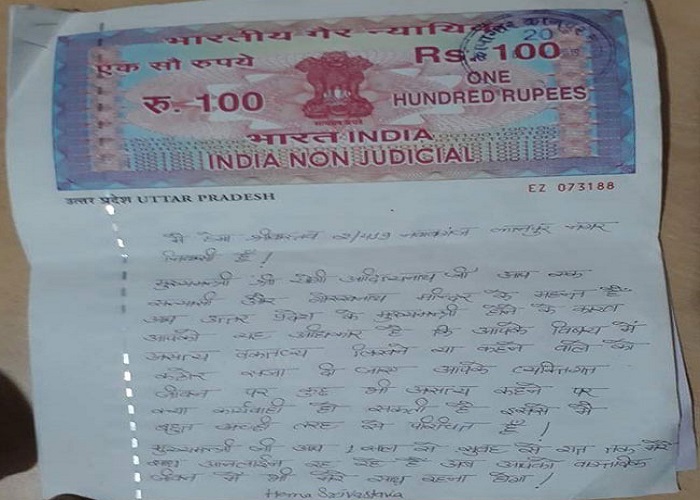 भारतीय गैर न्यायिक
एक सौ रुपये
Rs. 100
रु. 100
ONE
HUNDRED RUPEES
भारत INDIA
INDIA NON JUDICIAL
20
उत्तर प्रदेश UTTAR PRADESH
EZ 073188
मैं हेमा श्रीवास्तव 2/419 नवाबगंज कानपुर नगर
निवासी हूँ!
मुख्यमंत्री श्री योगी आदित्यनाथ जी आप एक
सन्यासी और गोरखनाथ मन्दिर के महन्त हैं
आप उत्तर प्रदेश के मुख्यमंत्री होने के कारण
आपको यह अधिकार है कि आपके विषय में
असत्य वक्तव्य लिखने या कहने वाले को
कठोर सजा दी जाए आपके व्यक्तिगत
जीवन पर कुछ भी असत्य कहने पर
क्या कार्यवाही हो सकती है इससे मैं
बहुत अच्छी तरह से परिचित हूँ!
मुख्यमंत्री जी आप 1 साल से सुबह से रात तक मेरे
साथ आनलाईन रह रहे हैं अब आपको वास्तविक
जीवन में भी मेरे साथ रहना होगा!
Hema Srivastava